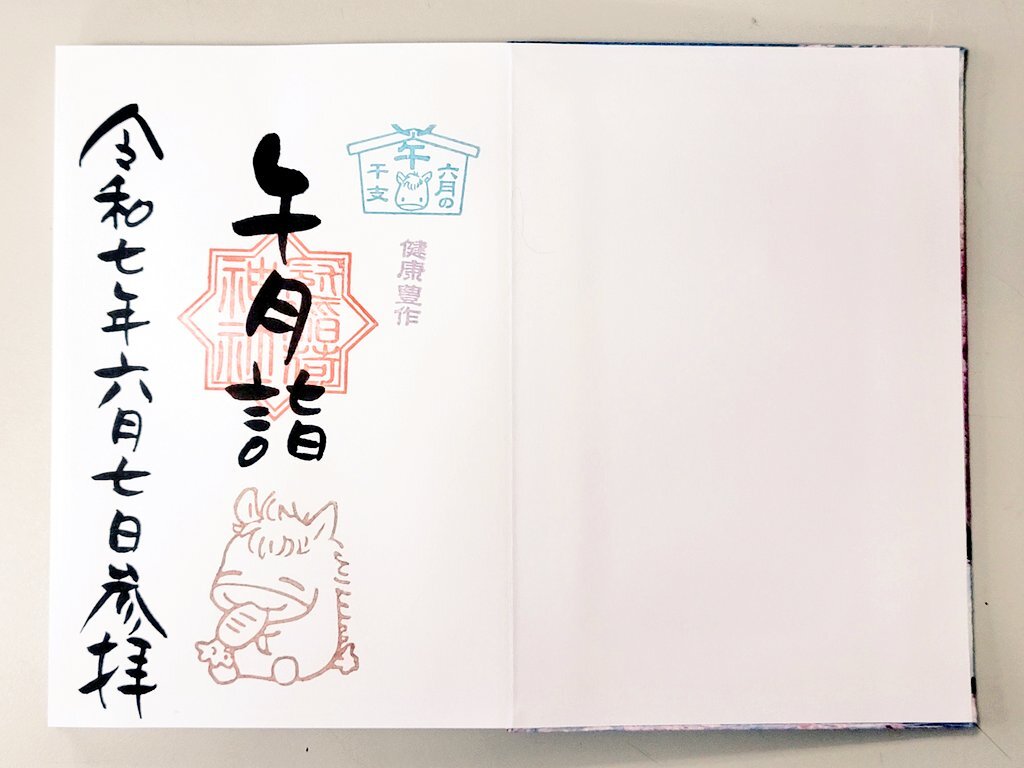 午
六月の
干支
健康豊作
午月詣
冠稲荷
神社
令和七年六月七日参拝